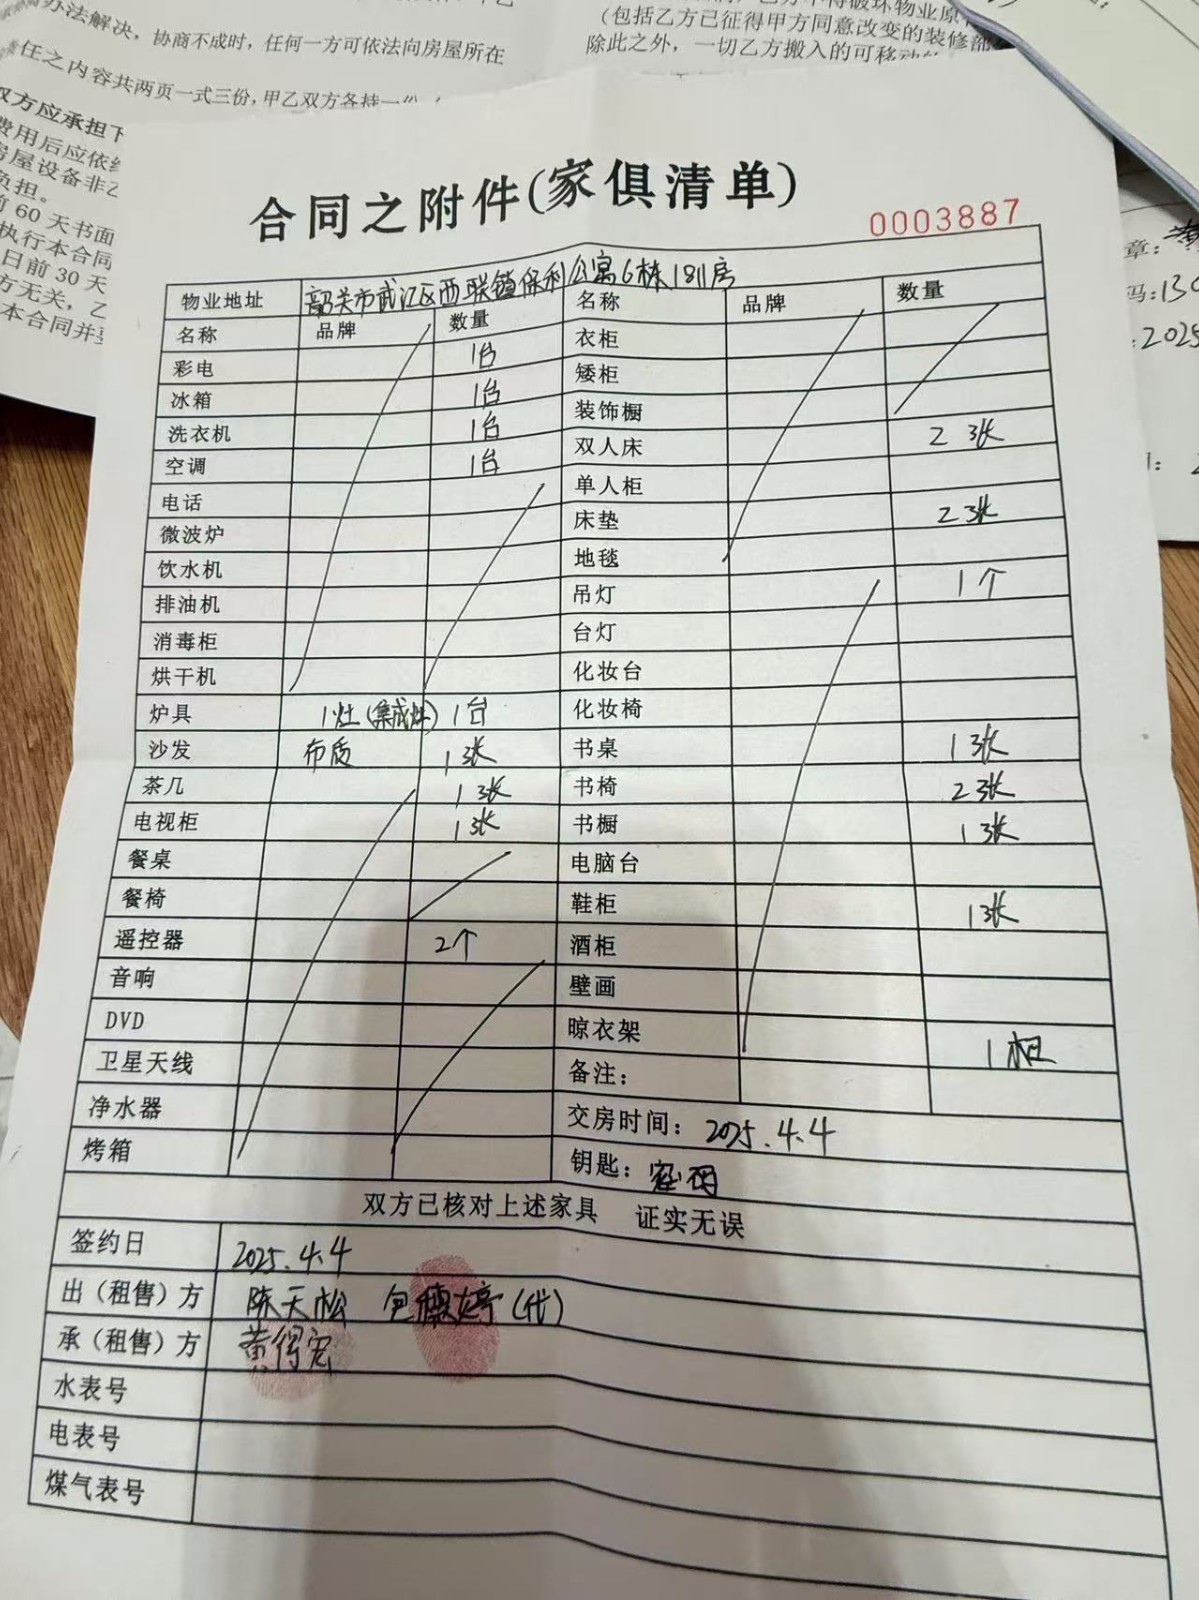 办法解决，协商不成时，任何一方可依法向房屋所在
任之内容共两页一式三份，甲乙双方各持一份
双方应承担下
费用后应依
房屋设备非乙
负担。
前60天书面
执行本合同
日前30天
方无关，乙
本合同并
(包括乙方已征得甲方同意改变的装修部
除此之外，一切乙方搬入的可移动
章：
码：130
：2025
合同之附件(家俱清单)
0003887
物业地址 韶关市武江区西联镇保利公寓6栋1811房
名称 品牌 数量 名称 品牌 数量
彩电 1台 衣柜
冰箱 1台 矮柜
洗衣机 1台 装饰橱
空调 1台 双人床 2张
电话 单人柜
微波炉 床垫 2张
饮水机 地毯
排油机 吊灯 1个
消毒柜 台灯
烘干机 化妆台
炉具 1灶(集成灶) 1台 化妆椅
沙发 布质 1张 书桌 1张
茶几 1张 书椅 2张
电视柜 1张 书橱 1张
餐桌 电脑台
餐椅 鞋柜 1张
遥控器 2个 酒柜
音响 壁画
DVD 晾衣架 1
卫星天线 备注：
净水器 交房时间：2025.4.4
烤箱 钥匙：密码
双方已核对上述家具 证实无误
签约日 2025.4.4
出（租售）方 陈天松 包穗婷(代)
承（租售）方 黄得宏
水表号
电表号
煤气表号